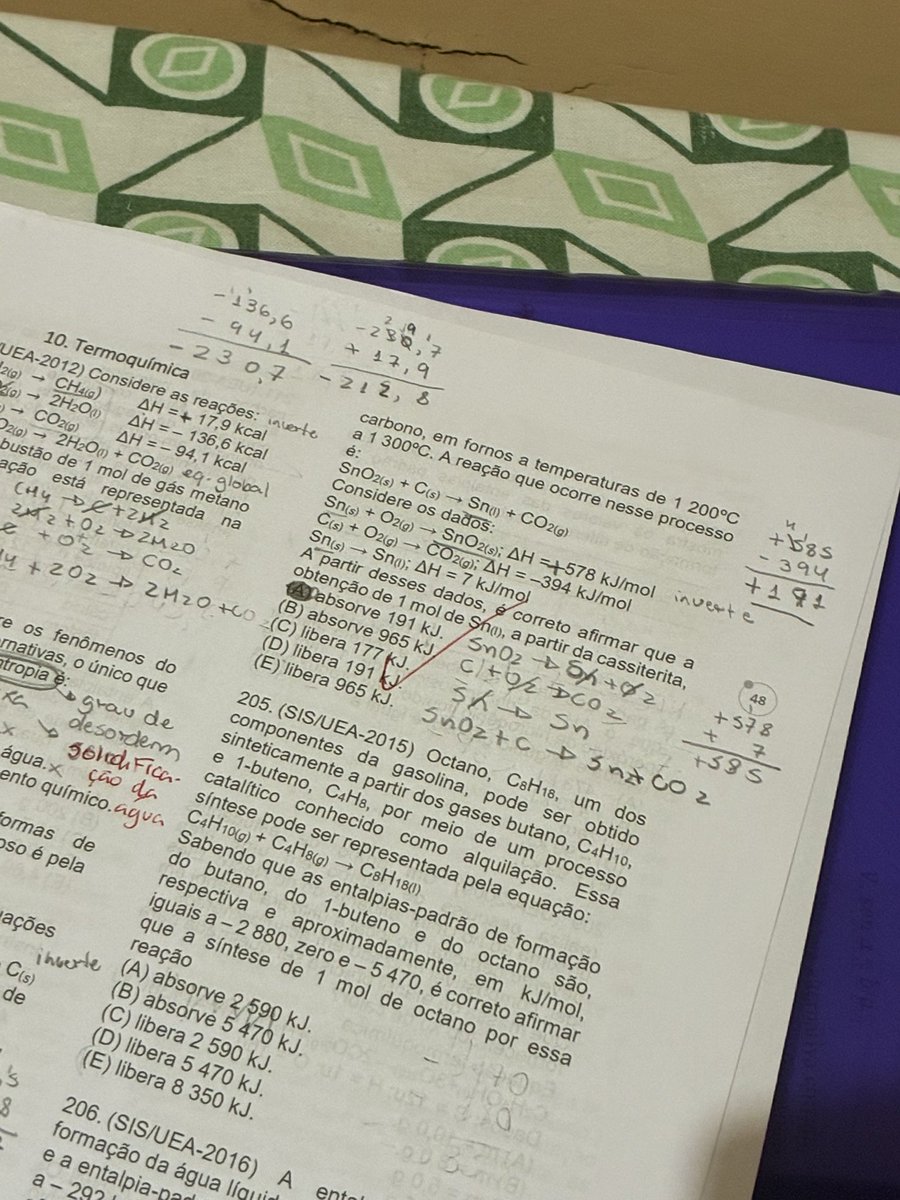 -136,6
- 94,1
-230,7
-230,7
+ 17,9
-212,8
10. Termoquímica
/UEA-2012) Considere as reações:
2(g) → CH4(g) ΔH = + 17,9 kcal inverte
2(g) → 2H2O(l) ΔH = – 136,6 kcal
→ CO2(g) ΔH = – 94,1 kcal
O2(g) → 2H2O(l) + CO2(g) eq. global
bustão de 1 mol de gás metano
ação está representada na
CH4 → C + 2H2
2H2 + O2 → 2H2O
C + O2 → CO2
+ 2O2 → 2H2O + CO
re os fenômenos do
rnativas, o único que
ntropia é:
grau de
desordem
solidifica-
ção da
água
x
água. x
ento químico.
formas de
oso é pela
uações
inverte
C(s)
de
carbono, em fornos a temperaturas de 1 200ºC
a 1 300ºC. A reação que ocorre nesse processo
é:
SnO2(s) + C(s) → Sn(l) + CO2(g)
Considere os dados:
Sn(s) + O2(g) → SnO2(s); ΔH = +578 kJ/mol inverte
C(s) + O2(g) → CO2(g); ΔH = –394 kJ/mol
Sn(s) → Sn(l); ΔH = 7 kJ/mol
A partir desses dados, é correto afirmar que a
obtenção de 1 mol de Sn(l), a partir da cassiterita,
(A) absorve 191 kJ.
(B) absorve 965 kJ.
(C) libera 177 kJ.
(D) libera 191 kJ.
(E) libera 965 kJ.
SnO2 → Sn + O2
C + O2 → CO2
Sn → Sn
SnO2 + C → Sn + CO2
+585
- 394
+191
48
+578
+ 7
+585
205. (SIS/UEA-2015) Octano, C8H18, um dos
componentes da gasolina, pode ser obtido
sinteticamente a partir dos gases butano, C4H10,
e 1-buteno, C4H8, por meio de um processo
catalítico conhecido como alquilação. Essa
síntese pode ser representada pela equação:
C4H10(g) + C4H8(g) → C8H18(l)
Sabendo que as entalpias-padrão de formação
do butano, do 1-buteno e do octano são,
respectiva e aproximadamente, em kJ/mol,
iguais a – 2 880, zero e – 5 470, é correto afirmar
que a síntese de 1 mol de octano por essa
reação
(A) absorve 2 590 kJ.
(B) absorve 5 470 kJ.
(C) libera 2 590 kJ.
(D) libera 5 470 kJ.
(E) libera 8 350 kJ.
206. (SIS/UEA-2016) A
formação da água líqui
e a entalpia-pad
a – 292